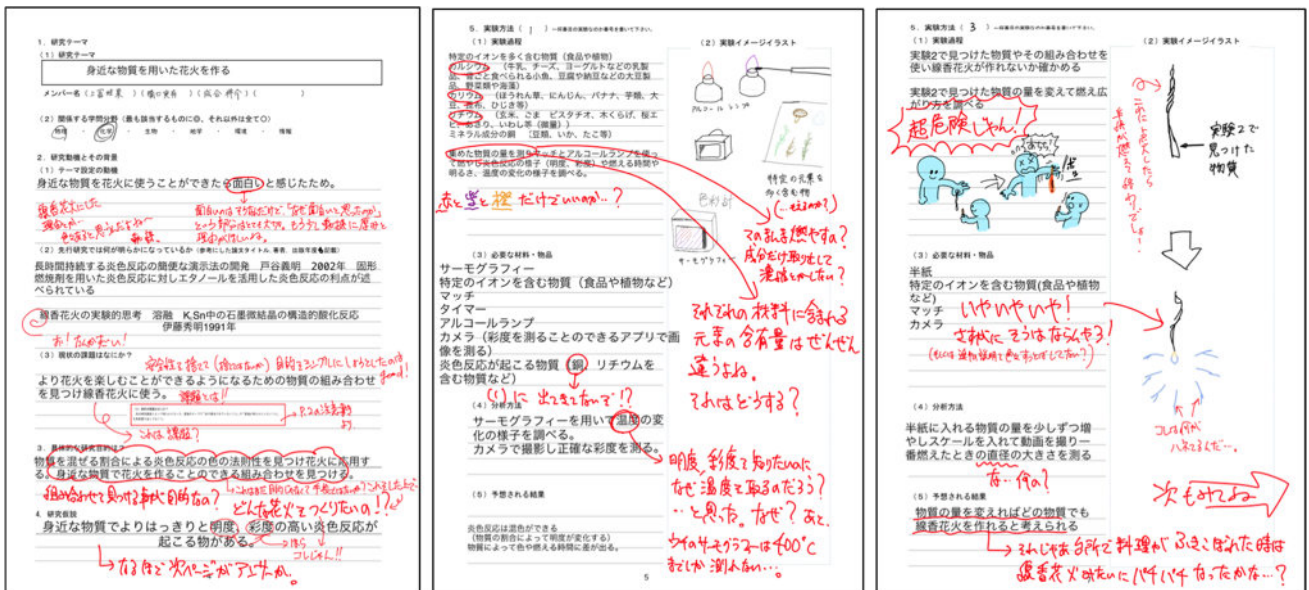 1. 研究テーマ
(1) 研究テーマ
身近な物質を用いた花火を作る
メンバー名
(2) 関係する学問分野 (最も該当するものに◎、それ以外は全て○)
物理 ・ 化学 ・ 生物 ・ 地学 ・ 環境 ・ 情報
2. 研究動機とその背景
(1) テーマ設定の動機
身近な物質を花火に使うことができたら面白いと感じたため。
線香花火にした
理由とか…
(2) 先行研究では何が明らかになっているか (参考にした論文タイトル、著者、出版年度も記載)
長時間持続する炎色反応の簡便な演示法の開発 戸谷義明 2002年 固形
燃焼剤を用いた炎色反応に対しエタノールを活用した炎色反応の利点が述
べられている
線香花火の実験的思考 溶融 K,Sn中の石墨微結晶の構造的酸化反応
伊藤秀明1991年
お!なんかむずい!
(3) 現状の課題はなにか?
より花火を楽しむことができるようになるための物質の組み合わせ
を見つけ線香花火に使う。
課題とは!!
これは課題?
3. 具体的な研究目的は?
物質を混ぜる割合による炎色反応の色の法則性を見つけ花火に応用す
る。身近な物質で花火を作ることのできる組み合わせを見つける。
組み合わせを見つける事が目的なの?
どんな花火をつくりたいの!?
4. 研究仮説
身近な物質でよりはっきりと明度、彩度の高い炎色反応が
起こる物がある。
ほら
コレじゃん!!
なるほど次ページがアンサーか。
5. 実験方法 ( 1 ) ー何番目の実験なのか番号を書いて下さい。
(1) 実験過程
特定のイオンを多く含む物質(食品や植物)
カルシウム (牛乳、チーズ、ヨーグルトなどの乳製
品、骨ごと食べられる小魚、豆腐や納豆などの大豆製
品、野菜類や海藻)
カリウム (ほうれん草、にんじん、バナナ、芋類、大
豆、昆布、ひじき等)
リチウム (玄米、ごま ピスタチオ、木くらげ、桜エ
ビ、あさり、いわし等(微量))
ミネラル成分の銅 (豆類、いか、たこ等)
集めた物質の量を測りマッチとアルコールランプを使っ
て燃やし炎色反応の様子(明度、彩度)や燃える時間や
明るさ、温度の変化の様子を調べる。
赤と紫と橙だけでいいのか…?
(2) 実験イメージイラスト
アルコールランプ
特定の元素を
多く含む物
(…もえるのか?)
色彩計
サーモグラフィー
そのまんま燃やすの?
成分だけ取り出して
濃縮とかしたい?
(3) 必要な材料・物品
サーモグラフィー
特定のイオンを含む物質(食品や植物など)
マッチ
タイマー
アルコールランプ
カメラ(彩度を測ることのできるアプリで画
像を測る)
炎色反応が起こる物質(銅、リチウムを
含む物質など)
(1)に出てきてないで!?
それぞれの材料に含まれる
元素の含有量はぜんぜん
違うよね。
それはどうする?
(4) 分析方法
サーモグラフィーを用いて温度の変
化の様子を調べる。
カメラで撮影し正確な彩度を測る。
明度、彩度を知りたいのに
なぜ温度を取るのだろう?
…と思った。なぜ?あと、
ウチのサーモグラフィーは400℃
までしか測れない…。
(5) 予想される結果
炎色反応は混色ができる
(物質の割合によって明度が変化する)
物質によって色や燃える時間に差が出る。
5
5. 実験方法 ( 3 ) ー何番目の実験なのか番号を書いて下さい。
(1) 実験過程
実験2で見つけた物質やその組み合わせを
使い線香花火が作れないか確かめる
実験2で見つけた物質の量を変えて燃え広
がり方を調べる
超危険じゃん!
(2) 実験イメージイラスト
これに点火したら
半紙が燃えて終わり?でしょ!
実験2で
見つけた
物質
(3) 必要な材料・物品
半紙
特定のイオンを含む物質(食品や植物
など)
マッチ
カメラ
いやいやいや!
さすがにそうはならんやろ!
(4) 分析方法
半紙に入れる物質の量を少しずつ増
やしスケールを入れて動画を撮り一
番燃えたときの直径の大きさを測る
な…何の?
コレは何が
ハネてるんだ…。
(5) 予想される結果
物質の量を変えればどの物質でも
線香花火を作れると考えられる
次もみてね
それじゃあ台所で料理がふきこぼれた時は
線香花火みたいにパチパチなったかな…?